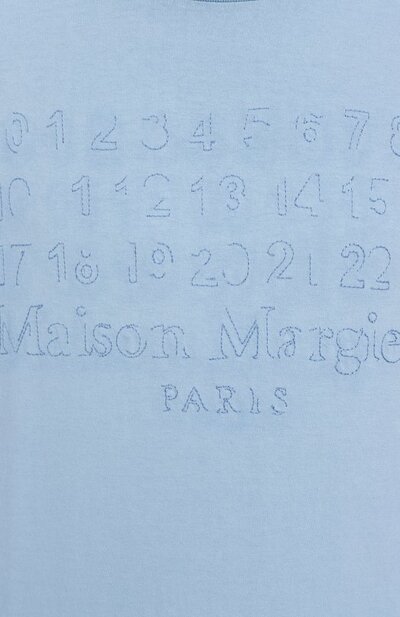 0 1 2 3 4 5 6 7 8
10 11 12 13 14 15
17 18 19 20 21 22
Maison Margie
PARIS